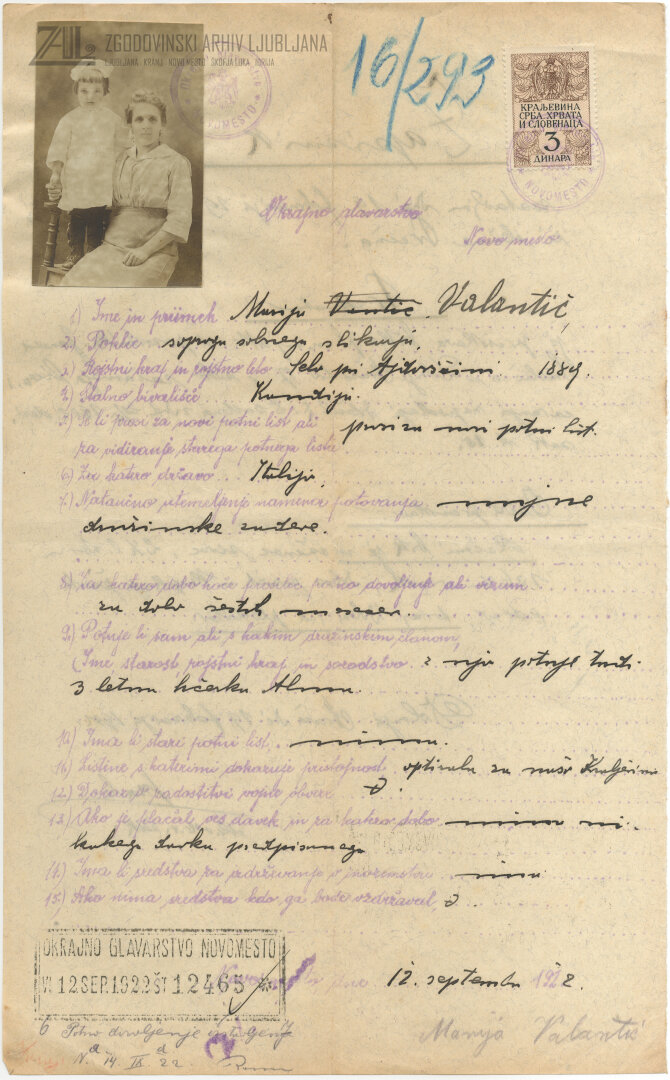 ZAL ZGODOVINSKI ARHIV LJUBLJANA
LJUBLJANA KRANJ NOVO MESTO ŠKOFJA LOKA IDRIJA
16/293
КРАЉЕВИНА
СРБА, ХРВАТА
И СЛОВЕНАЦА
3
ДИНАРА
NOVOMESTO
NOVOMESTO
Okrajno glavarstvo
Novo mesto
1.) Ime in priimek Marija Vantič, Valantič,
2.) Poklic soproga sobnega slikarja,
3.) Rojstni kraj in rojstno leto Selo pri Ajdovščini 1889.
4.) Stalno bivališče Kandija.
5.) Je li prosi za novi potni list ali prosi za novi potni list.
za vidiranje starega potnega lista
6.) Za katero državo Italija,
7.) Natančno utemeljenje namena potovanja nujne
družinske zadeve.
8.) Za katero dobo hoče prosilec potno dovoljenje ali vizum
za dobo šestih mesecev.
9.) Potuje li sam ali s kakim družinskim članom,
(Ime, starost, rojstni kraj in sorodstvo. z njo potuje tudi
3 letna hčerka Alma.
10.) Ima li stari potni list, nima.
11.) Listine s katerimi dokazuje pristojnost optirala za našo Kraljevino
12.) Dokaz o zadostitvi vojne obveze
13.) Ako je plačal ves davek in za katero dobo nima ni-
kakega davka predpisanega
14.) Ima li sredstva za vzdrževanje v inozemstvu ima
15.) Ako nima sredstva kdo ga bode vzdrževal,
OKRAJNO GLAVARSTVO NOVOMESTO
12 SEP. 1922 ŠT 12463
dne 12. septembra 1922.
Potno dovoljenje
Marija Valantič